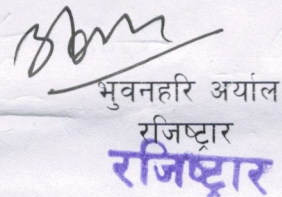 भुवनहरि अर्याल
रजिष्ट्रार
रजिष्ट्रार